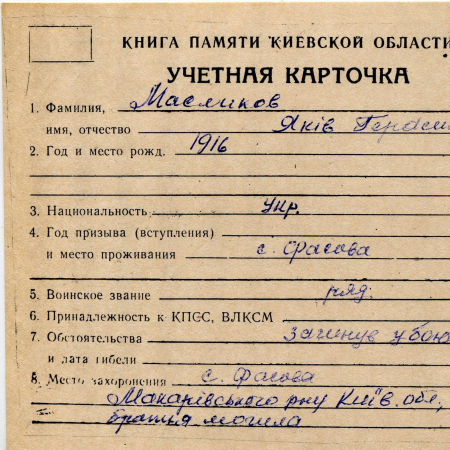 КНИГА ПАМЯТИ КИЕВСКОЙ ОБЛАСТИ
УЧЕТНАЯ КАРТОЧКА
1. Фамилия, Масликов
имя, отчество Яків Гераси
2. Год и место рожд. 1916
3. Национальность Укр.
4. Год призыва (вступления)
и место проживания с. Фасова
5. Воинское звание ряд.
6. Принадлежность к КПСС, ВЛКСМ
7. Обстоятельства загинув у бою
и дата гибели
8. Место захоронения с. Фасова
Макарівського р-ну Київ. обл,
братня могила